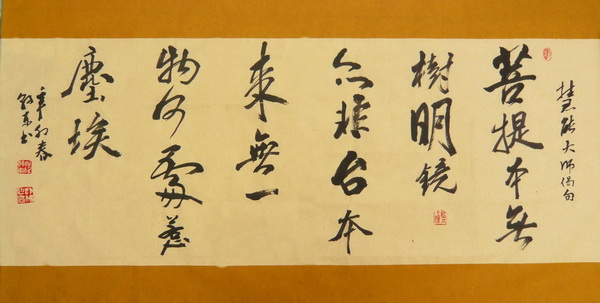 慧能大师偈句
菩提本無
樹明镜
亦非台本
來無一
物何處惹
塵埃
辛卯春
东书